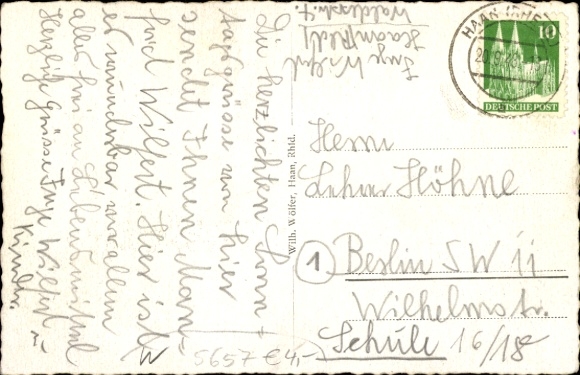 Die herzlichsten Sonn-
tagsgrüsse von hier
sendet Ihnen Man-
fred Wilfert. Hier ist
es wunderbar vor allem
aber frei an Lebensmittel
Herzliche Grüsse Inge Wilfert u.
Kinder.
Inge Wilfert
Haan (Rhld)
Waldschul
Wilh. Wölfer, Haan, Rhld.
HAAN (RHEINL)
10
DEUTSCHE POST
Herrn
Lehrer Höhne
1 Berlin SW 11
Wilhelmstr.
Schule 16/18
5657 € 4,-